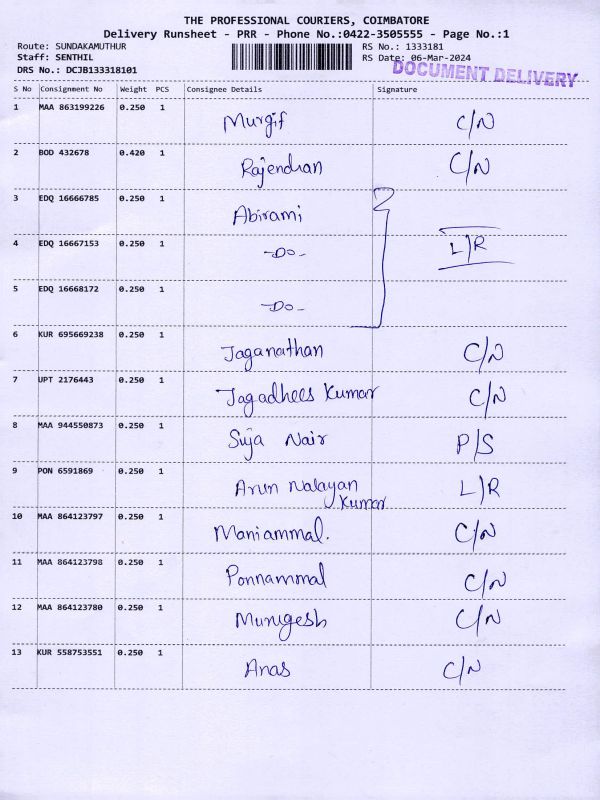 THE PROFESSIONAL COURIERS, COIMBATORE
Delivery Runsheet - PRR - Phone No.:0422-3505555 - Page No.:1
Route: SUNDAKAMUTHUR RS No.: 1333181
Staff: SENTHIL RS Date: 06-Mar-2024
DRS No.: DCJB133318101 DOCUMENT DELIVERY
S No Consignment No Weight PCS Consignee Details Signature
1 MAA 863199226 0.250 1 Murgif C/N
2 BOD 432678 0.420 1 Rajendran C/N
3 EDQ 16666785 0.250 1 Abirami
4 EDQ 16667153 0.250 1 -Do- L/R
5 EDQ 16668172 0.250 1 -Do-
6 KUR 695669238 0.250 1 Jaganathan C/N
7 UPT 2176443 0.250 1 Jagadhees Kumar C/N
8 MAA 944550873 0.250 1 Suja Nair P/S
9 PON 6591869 0.250 1 Arun Nalayan L/R
Kumar
10 MAA 864123797 0.250 1 Maniammal. C/N
11 MAA 864123798 0.250 1 Ponnammal C/N
12 MAA 864123780 0.250 1 Murugesh C/N
13 KUR 558753551 0.250 1 Anas C/N